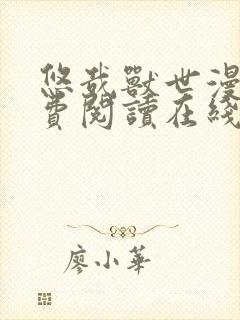 悠哉獸世漫
費閱讀在綫
廖小華